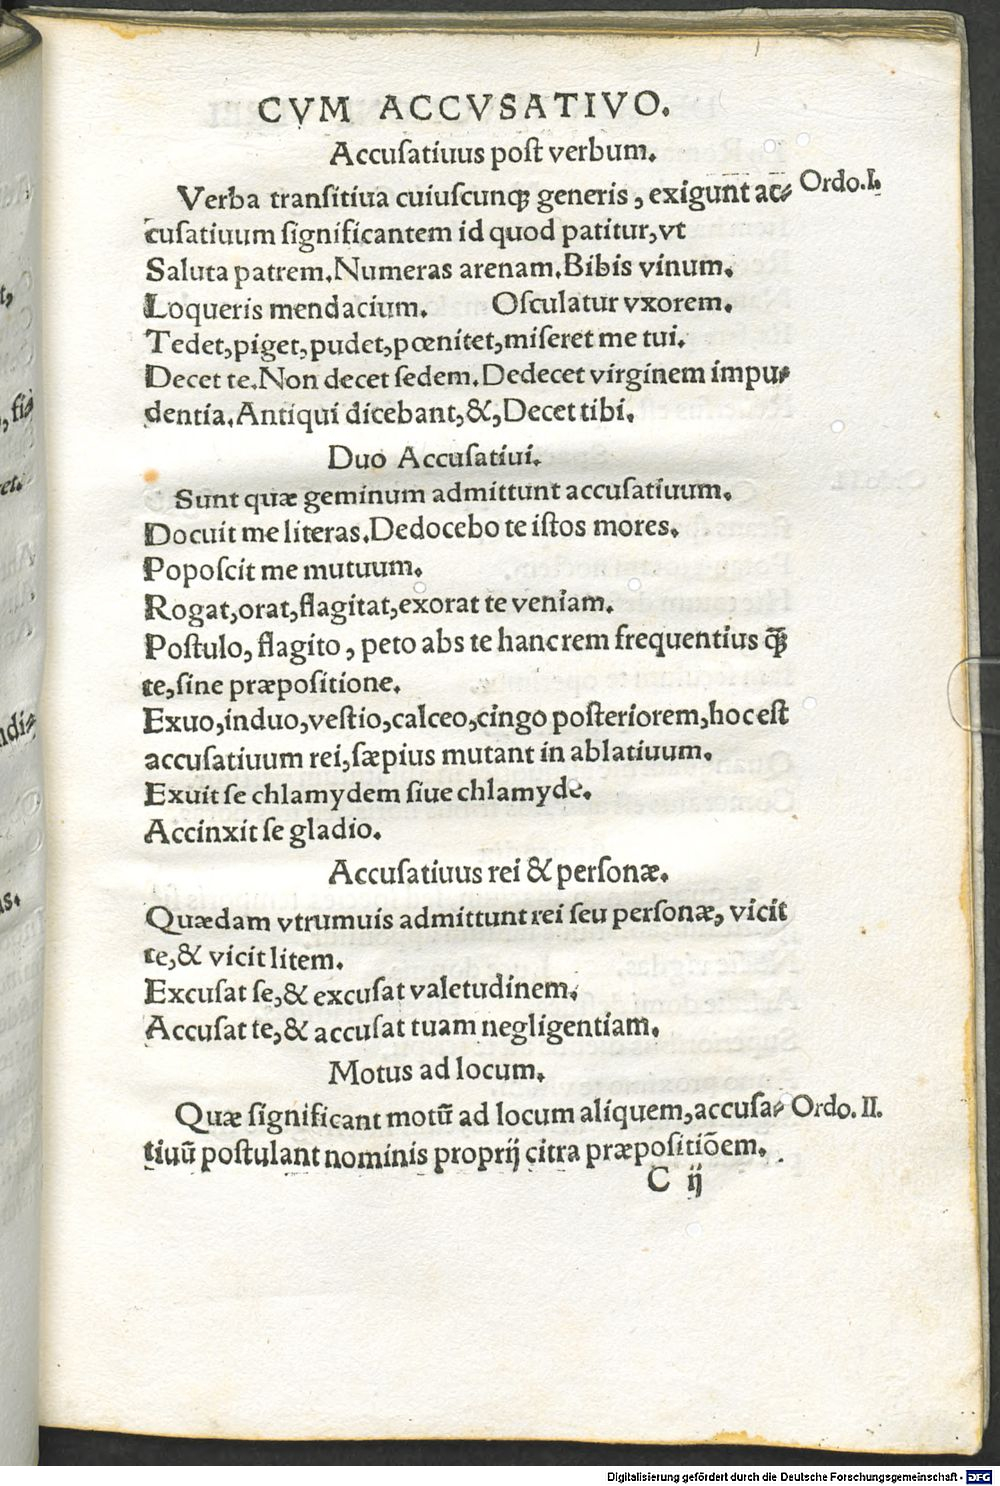 CVM ACCVSATIVO.
Accusatiuus post verbum.
Verba transitiua cuiuscunqꝫ generis, exigunt ac- Ordo.I.
cusatiuum significantem id quod patitur, vt
Saluta patrem. Numeras arenam. Bibis vinum.
Loqueris mendacium. Osculatur vxorem.
Tedet, piget, pudet, pœnitet, miseret me tui.
Decet te. Non decet sedem. Dedecet virginem impu-
dentia. Antiqui dicebant, &, Decet tibi.
Duo Accusatiui.
Sunt quæ geminum admittunt accusatiuum.
Docuit me literas. Dedocebo te istos mores.
Poposcit me mutuum.
Rogat, orat, flagitat, exorat te veniam.
Postulo, flagito, peto abs te hancrem frequentius q̃ꝫ
te, sine præpositione.
Exuo, induo, vestio, calceo, cingo posteriorem, hoc est
accusatiuum rei, sæpius mutant in ablatiuum.
Exuit se chlamydem siue chlamyde.
Accinxit se gladio.
Accusatiuus rei & personæ.
Quædam vtrumuis admittunt rei seu personæ, vicit
te, & vicit litem.
Excusat se, & excusat valetudinem.
Accusat te, & accusat tuam negligentiam.
Motus ad locum.
Quæ significant motũ ad locum aliquem, accusa- Ordo. II.
tiuũ postulant nominis proprij citra præpositiõem.
C ij
Digitalisierung gefördert durch die Deutsche Forschungsgemeinschaft - DFG